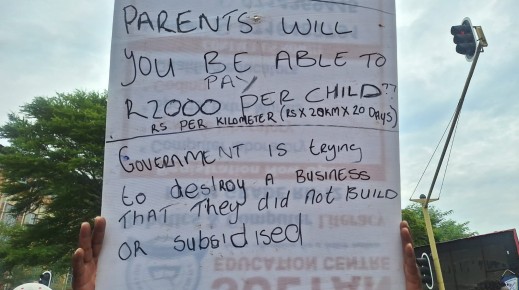 PARENTS WILL
YOU BE ABLE TO
PAY
R2000 PER CHILD??
R5 PER KILOMETER (R5 X 20KM X 20 Days)
GOVERNMENT IS trying
to destroy A BUSINESS
THAT They did not BUILD
OR subsidised
EDUCATION CENTRE
SULTAN